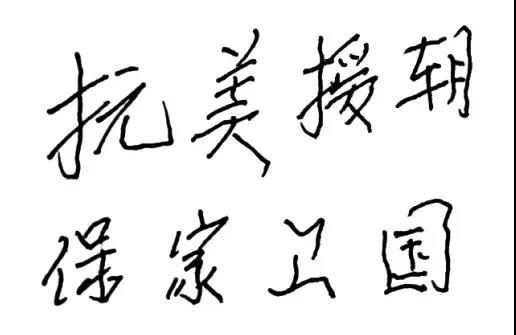 抗美援朝
保家卫国